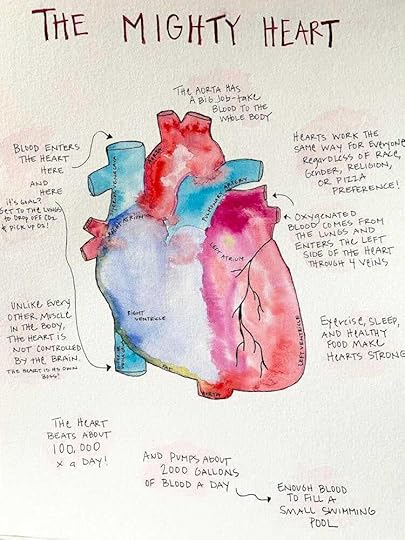 THE MIGHTY HEART
THE AORTA HAS
A BIG JOB-take
BLOOD TO THE
WHOLE BODY
BLOOD ENTERS
THE HEART
HERE
AND
HERE
ITS GOAL?
GET TO THE LUNGS
TO DROP OFF CO2
& PICK UP O2!
HEARTS WORK THE
SAME WAY FOR EVERYONE
REGARDLESS OF RACE,
GENDER, RELIGION,
OR PIZZA
PREFERENCE!
OXYGENATED
BLOOD COMES FROM
THE LUNGS AND
ENTERS THE LEFT
SIDE OF THE HEART
THROUGH 4 VEINS
AORTA
PULMONARY ARTERY
ATRIUM
LEFT ATRIUM
RIGHT
VENTRICLE
LEFT VENTRICLE
FAT
AORTA
UNLIKE EVERY
OTHER MUSCLE
IN THE BODY,
THE HEART IS
NOT CONTROLLED
BY THE BRAIN.
THE HEART IS ITS OWN
BOSS!
EXERCISE, SLEEP,
AND HEALTHY
FOOD MAKE
HEARTS STRONG
THE HEART
BEATS ABOUT
100,000
x a DAY!
AND PUMPS ABOUT
2000 GALLONS
OF BLOOD A DAY
ENOUGH BLOOD
TO FILL A
SMALL SWIMMING
POOL